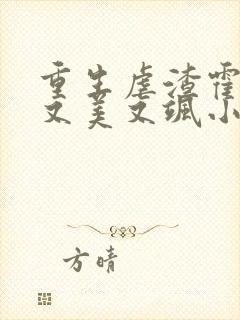 重生虐渣霍
又美又飒小
方晴